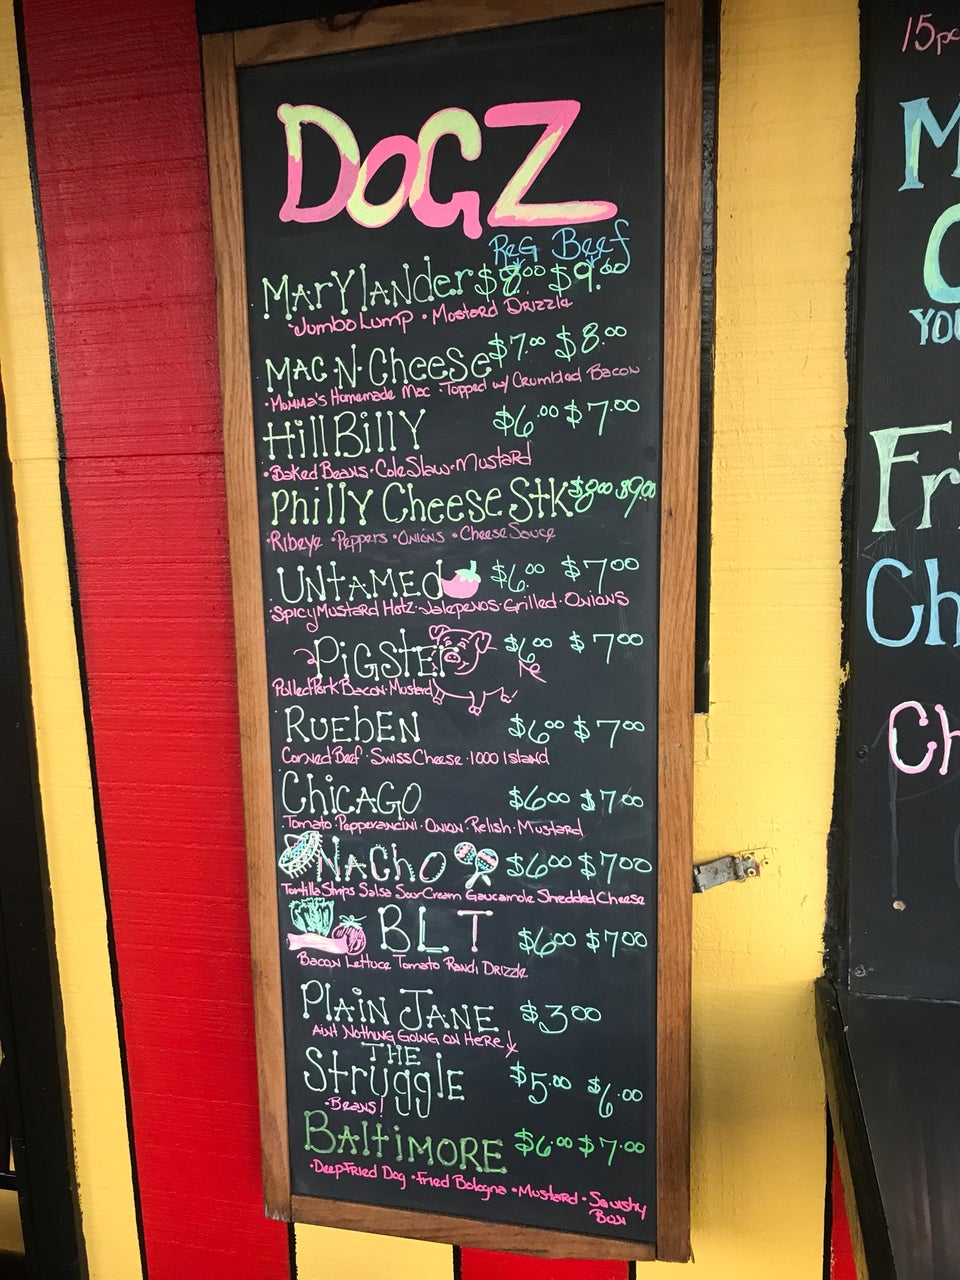 DOGZ
REG Beef
MARYlANDer $8.00 $9.00
•Jumbo Lump •Mustard Drizzle
MAC N• CheeSe $7.00 $8.00
•Momma's Homemade Mac •Topped w/ Crumbled Bacon
HillBillY $6.00 $7.00
•Baked Beans •Cole Slaw •Mustard
PhillY Cheese StK $8.00 $9.00
•Ribeye •Peppers •Onions •Cheese Sauce
UNtAMEd $6.00 $7.00
•Spicy Mustard Hotz •Jalepenos •Grilled •Onions
PiGSter $6.00 $7.00
Pulled Pork •Bacon •Mustard
RUEbEN $6.00 $7.00
Corned Beef •Swiss Cheese •1000 Island
ChiCAGO $6.00 $7.00
Tomato •Pepperancini •Onion •Relish •Mustard
NAChO $6.00 $7.00
Tortilla Strips Salsa Sour Cream Gaucamole Shredded Cheese
BLT $6.00 $7.00
Bacon Lettuce Tomato Ranch Drizzle
PlAiN JANE $3.00
AiNt NOTHiNG GOiNG ON HERE!
THE
StruggleE $5.00 $6.00
•Beans!
BAltiMORE $6.00 $7.00
•Deep Fried Dog •Fried Bologna •Mustard •Squishy
Bun
15pc
M
YOU
Fr
Ch
Ch